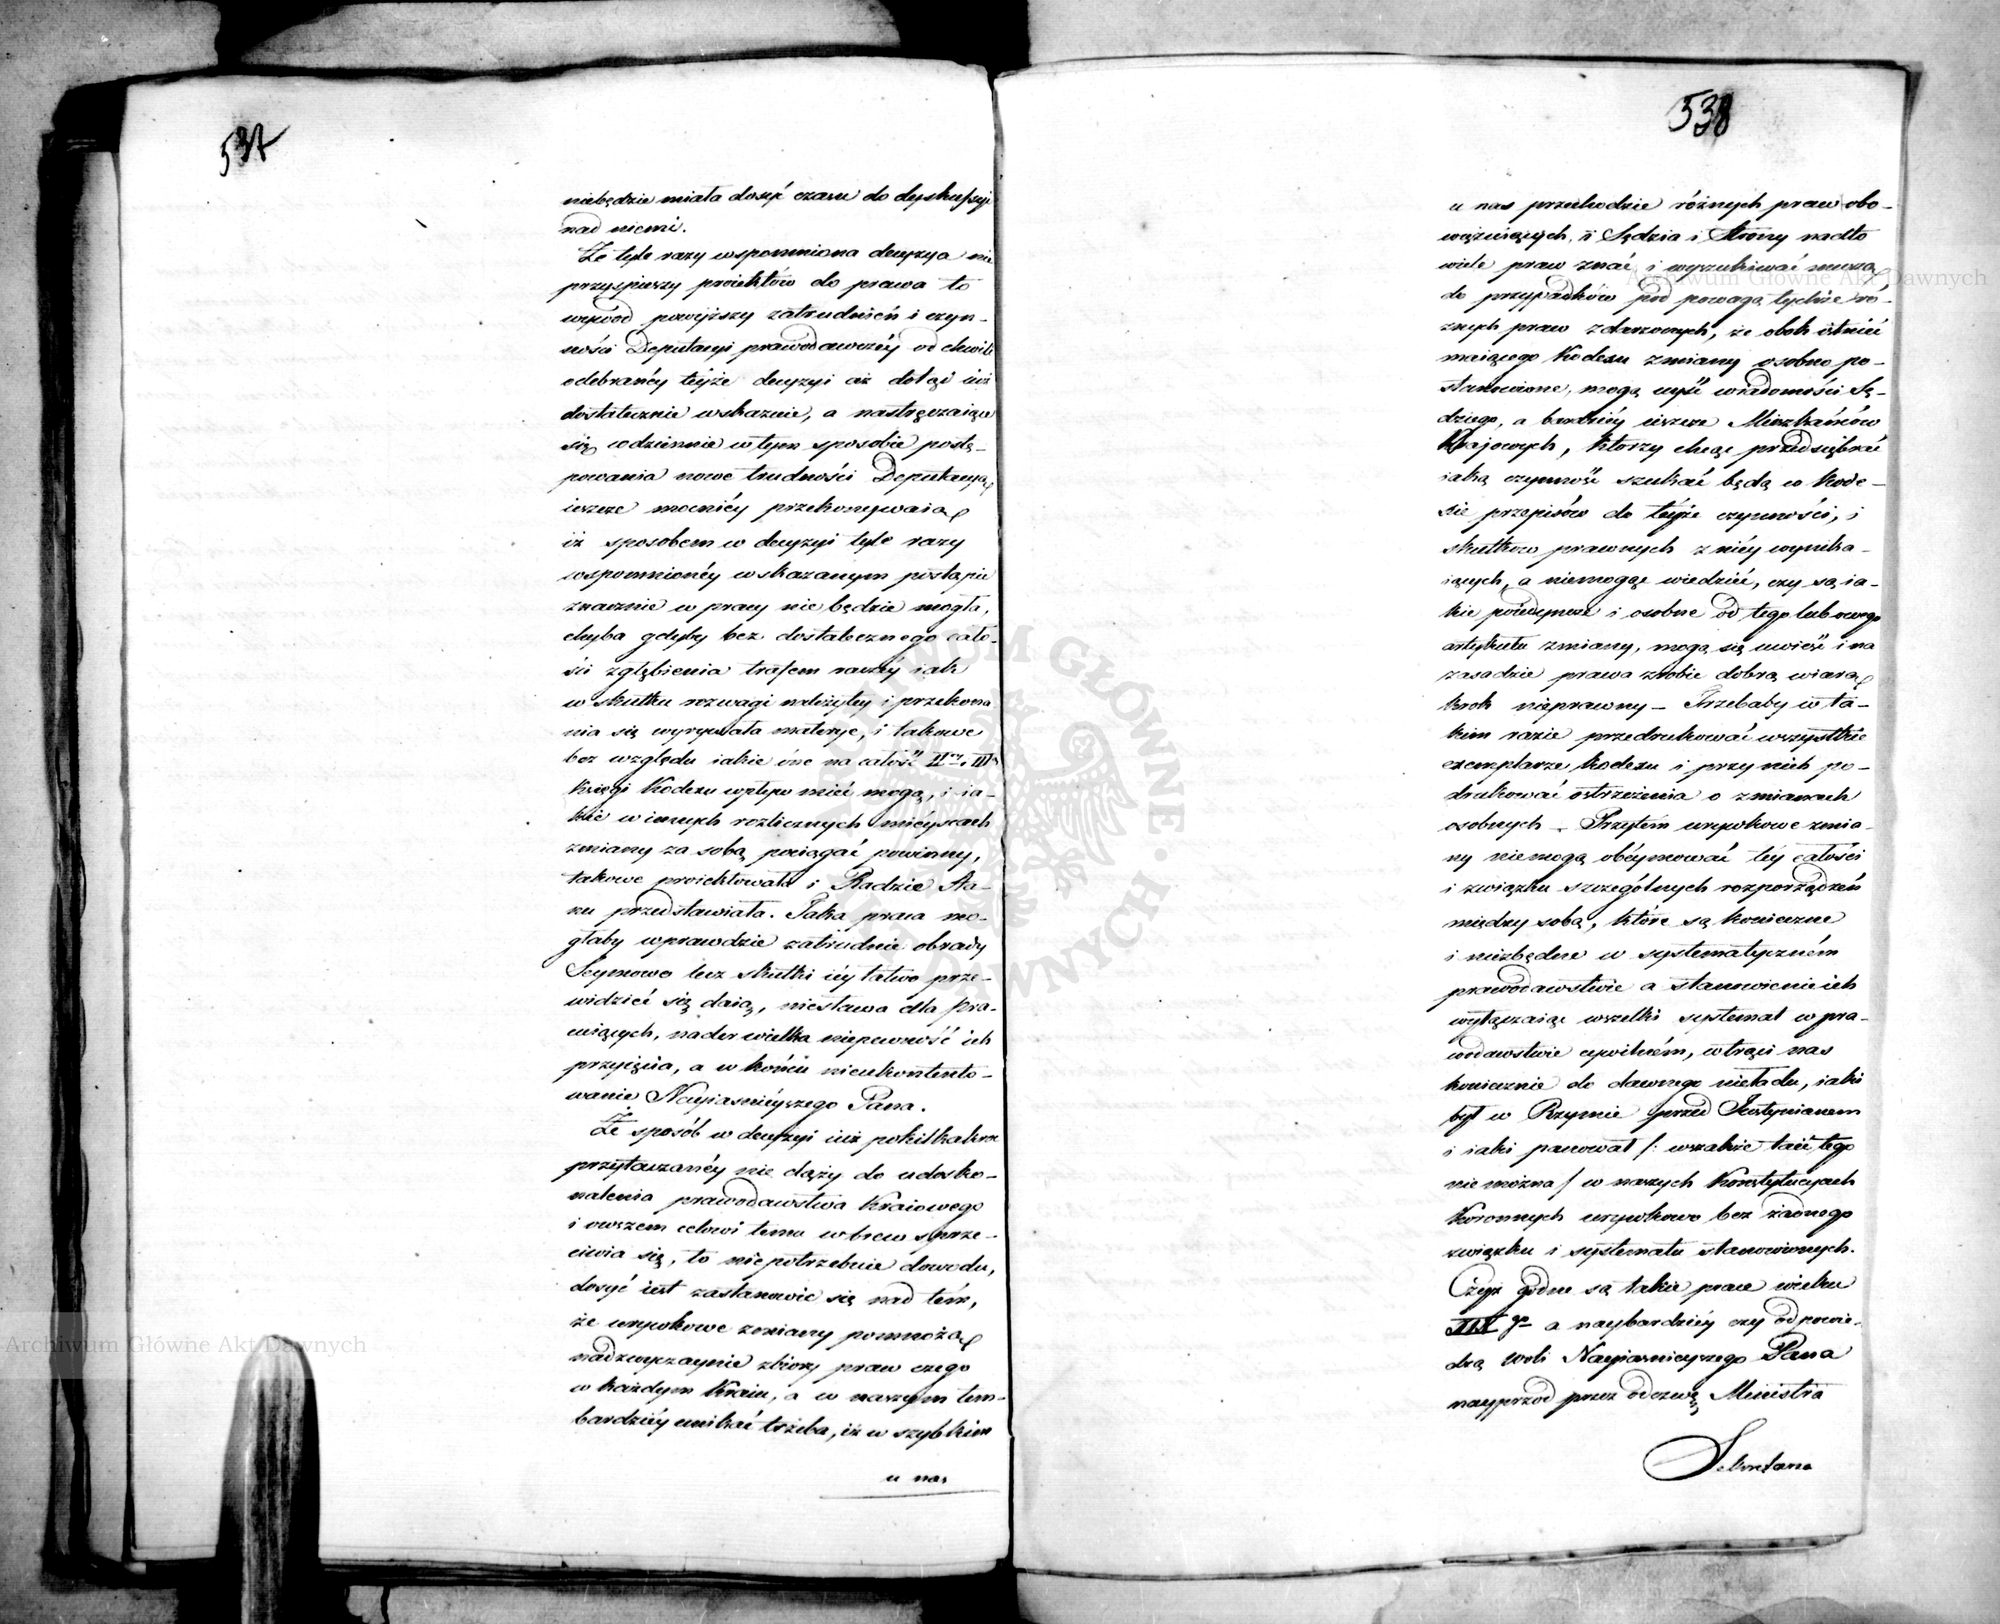 537
niebędzie miała dosyć czasu do dyskussyi
nad niemi.
Że tyle razy wspomniona decyzya nie
przyspieszy proiektów do prawa to
wywód powyższy zatrudnień i czyn-
ności Deputacyi prawodawczéy od chwili
odebranéy téyże decyzyi aż dotąd iuż
dostatecznie wskazuie, a nastręczaiące
się codziennie w tym sposobie postę-
powania nowe trudności Deputacyą
ieszcze mocniéy przekonywaią
iż sposobem w decyzyi tyle razy
wspomnionéy wskazanym postąpić
znacznie w pracy nie będzie mogła,
chyba gdyby bez dostatecznego cało-
ści zgłębienia trafem raczéy iak
w skutku rozwagi należytey i przekona
nia się wyrywała materye, i takowe
bez względu iakie óne na całość IIey i IIIey
Księgi Kodexu wpływ mieć mogą, i ia-
kie w innych rozlicznych mieyscach
zmiany za sobą pociągać powinny,
takowe proiektowała i Radzie Sta-
nu przedstawiała. Taka praca mo-
głaby wprawdzie zatrudnić obrady
Seymowe lecz skutki iéy łatwo prze-
widzieć się daią, niesława dla pra-
cuiących, nader wielka niepewność ich
przyięcia, a w końcu nieukontento-
wanie Nayiaśnieyszego Pana.
Że sposób w decyzyi iuż pokilkakroć
przytaczanéy nie dąży do udosko-
nalenia prawodawstwa Kraiowego
i owszem celowi temu wbrew sprze-
ciwia się, to nie potrzebuie dowodu,
dosyć iest zastanowić się nad tém,
że urywkowe zmiany pomnożą
nadzwyczaynie zbiory praw czego
w każdym Kraiu, a w naszym tem-
bardziéy unikać trzeba, iż w szybkim
u nas
538
u nas przechodzie różnych praw obo-
wiązuiących, iż Sędzia i Strony nadto
wiele praw znać i wyszukiwać muszą
do przypadków pod powagą tychże ró-
żnych praw zdarzonych, że obok istnieć
maiącego Kodexu zmiany osobno po-
stanowione, mogą uyść wiadomości Sę-
dziego, a bardziéy ieszcze Mieszkańców
Krajowych, którzy chcąc przedsiębrać
iaką czynność szukać będą w Kode-
xie przepisów do téyże czynności, i
skutków prawnych z niéy wynika-
iących, a niemogąc wiedzieć, czy są ia-
kie poiedyncze i osobne od tego lub owego
artykułu zmiany, mogą się uwieść i na
zasadzie prawa zrobić dobrą wiarą
krok nieprawny – Trzebaby w ta-
kim razie przedrukować wszystkie
exemplarze kodexu i przy nich po-
drukować ostrzeżenia o zmianach
osobnych – Przytém urywkowe zmia-
ny niemogą obéymować téy całości
i związku szczególnych rozporządzeń
między sobą, które są konieczne
i niezbędne w systematyczném
prawodawstwie a stanowienie ich
wyłączaiąc wszelki systemat w pra-
wodawstwie cywilném, wtrąci nas
koniecznie do dawnego nieładu, iaki
był w Rzymie przed Justynianem
i iaki panował /: wszakże taić tego
nie można / w naszych Konstytucyach
Koronnych urywkowo bez żadnego
związku i systematu stanowionych.
Czyż godne są takie prace wieku
XIXgo a naybardziéy czy odpowie-
dzą Woli Nayiaśnieyszego Pana
nayprzód przez odezwę Ministra
Sekretarza
Archiwum Główne Akt Dawnych
Archiwum Główne Akt Dawnych
ARCHIWUM GŁÓWNE AKT DAWNYCH